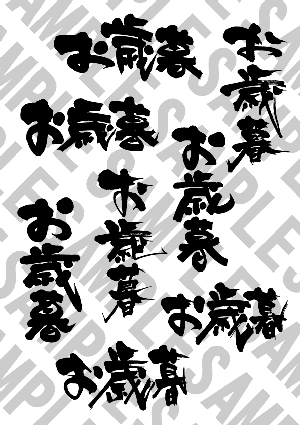 お歳暮
お歳暮
お歳暮
お歳暮
お歳暮
お歳暮
お歳暮
お歳暮
SAMPLE SAMPLE SAMPLE